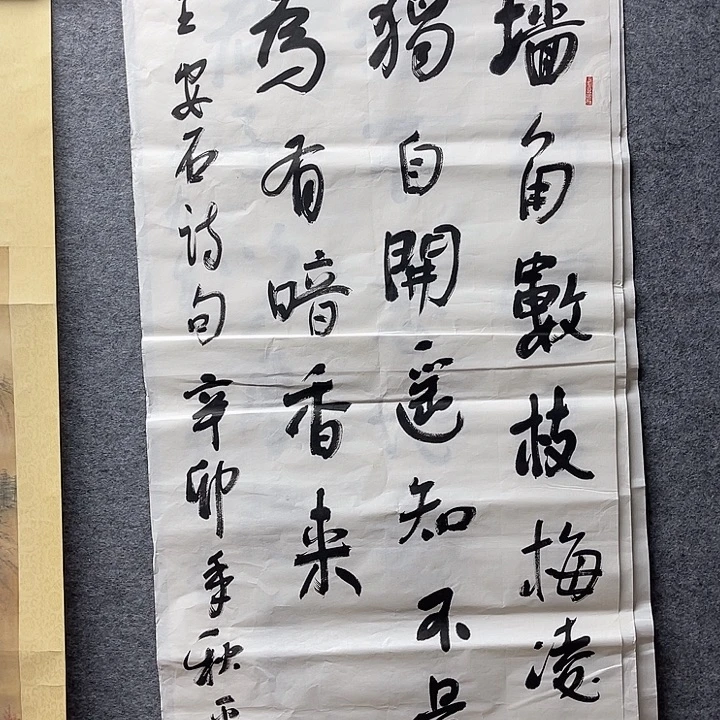 墙角數枝梅凌
獨自開遥知不是
為有暗香来
王安石詩句辛卯年秋